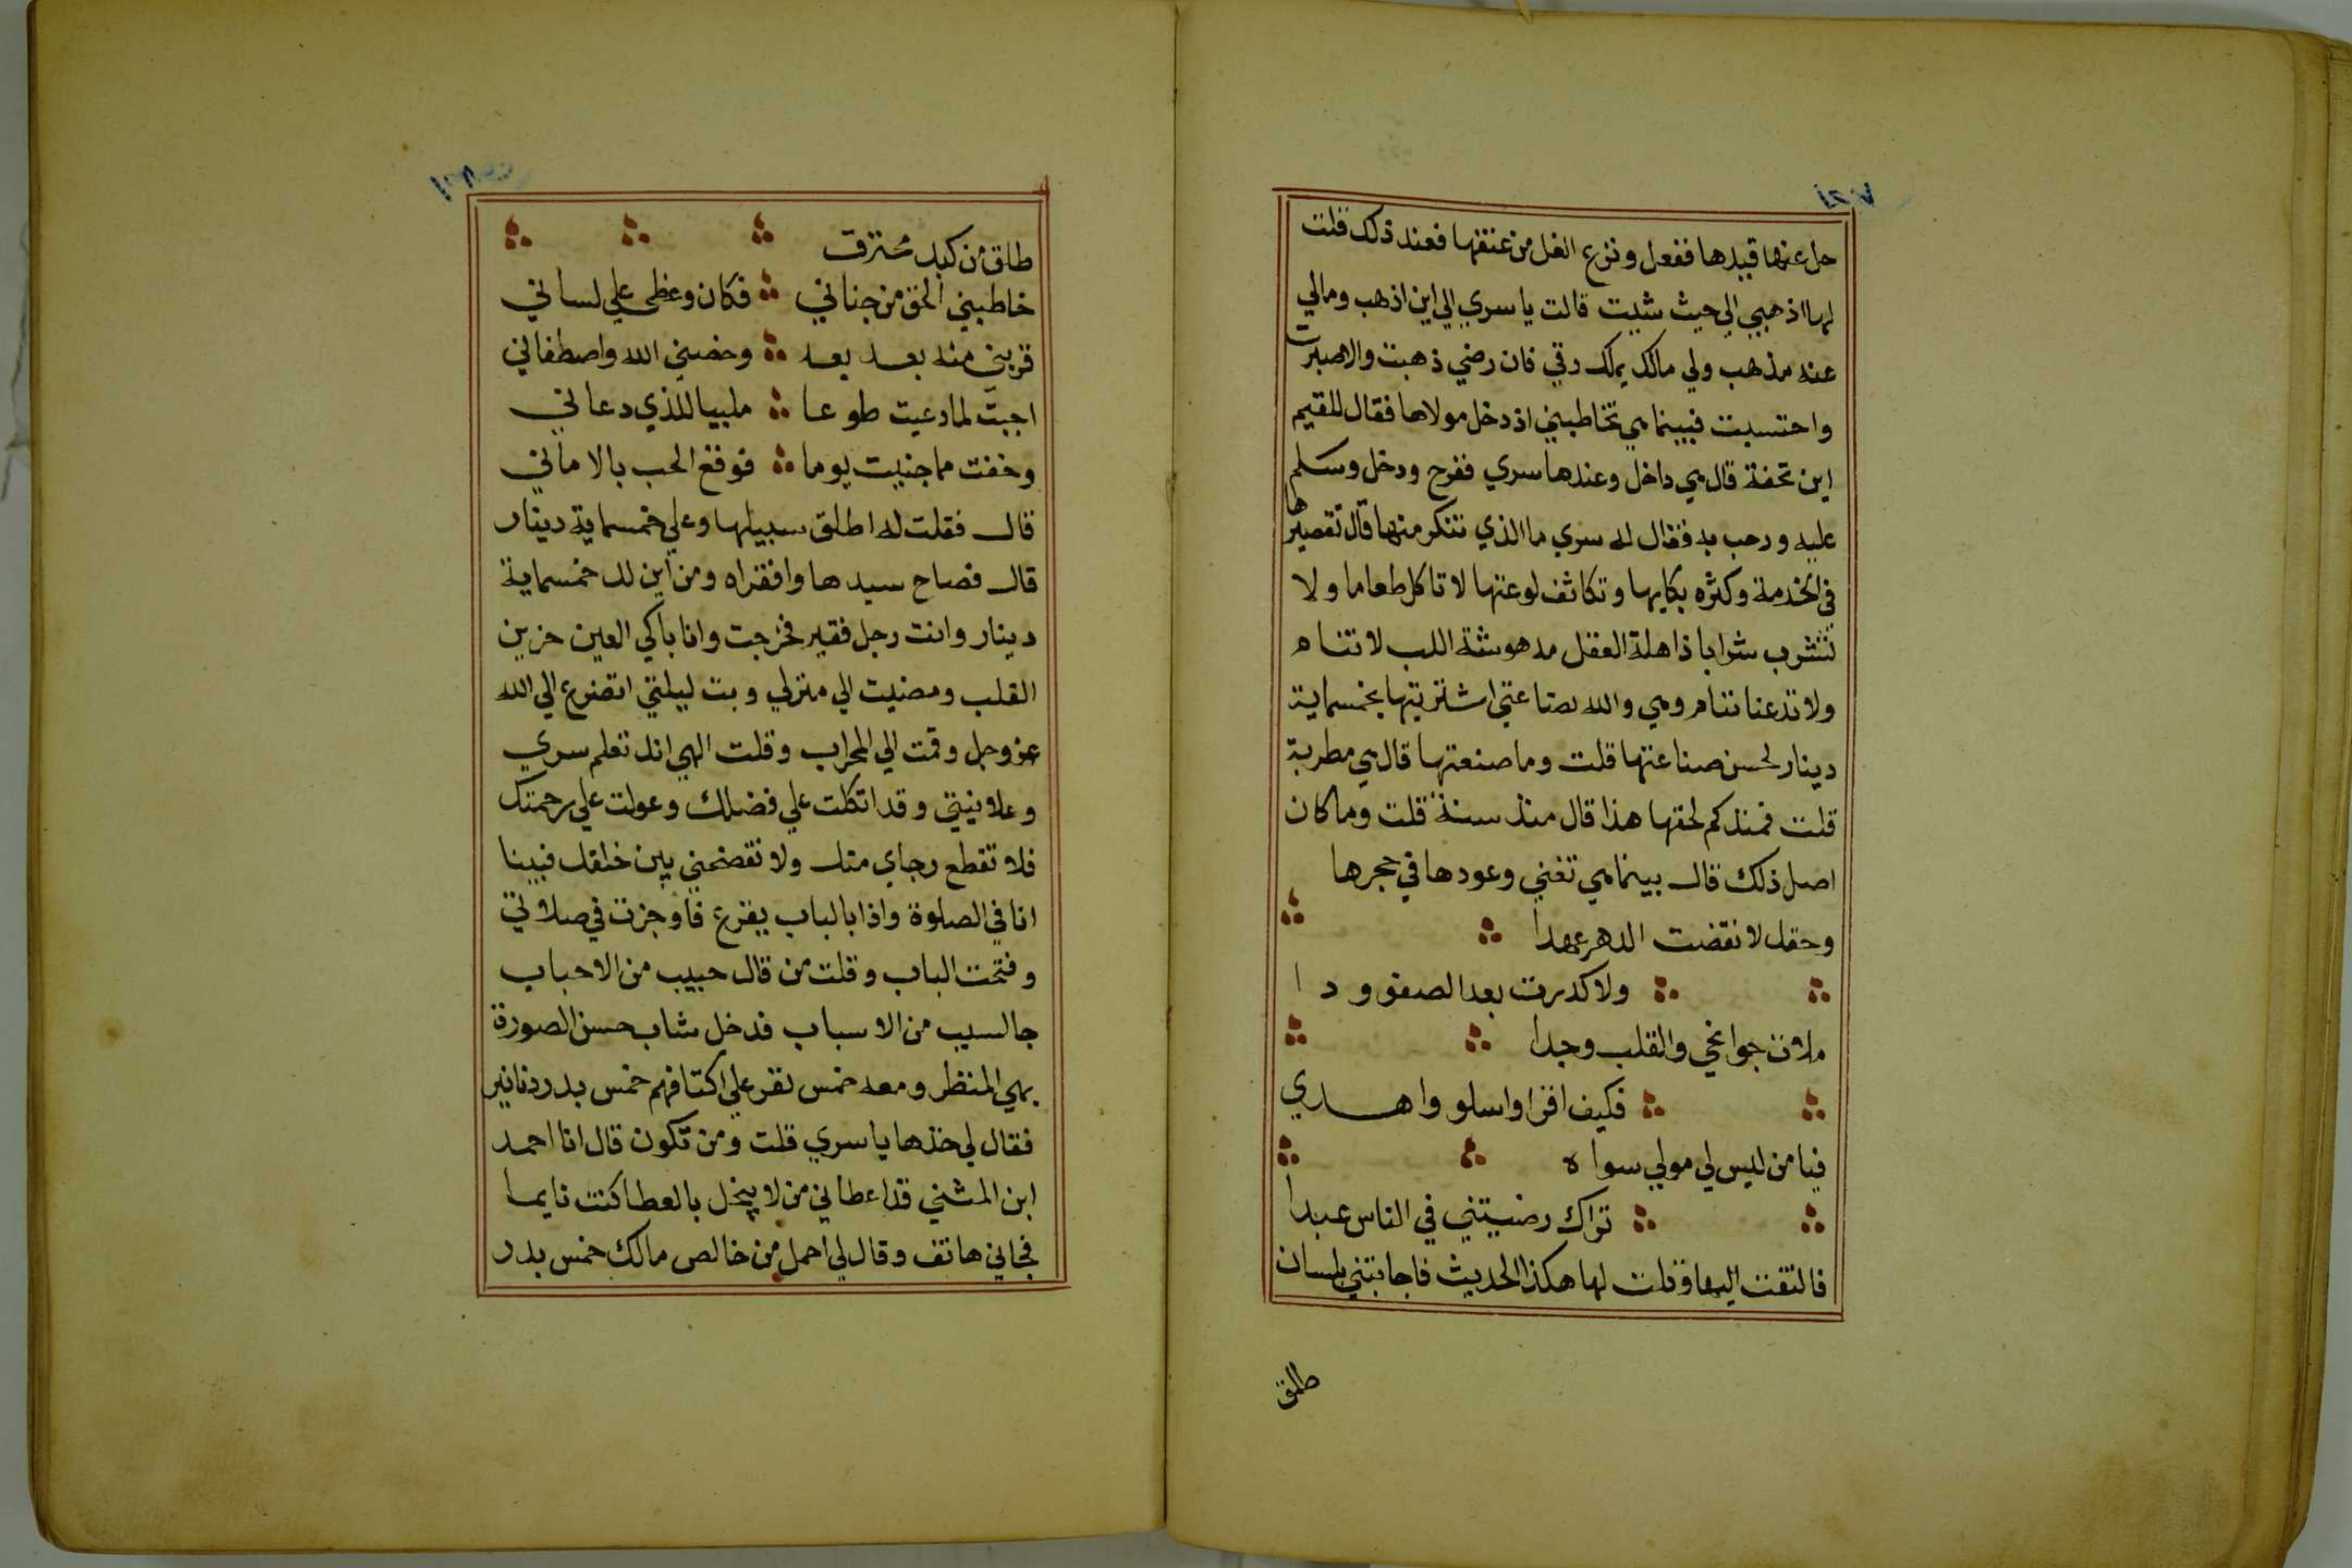 حل عنها قيدها ففعل ونزع الغل من عنقها فعند ذلك قلت
لها اذهبي الي حيث شيت قالت يا سري الي اين اذهب ومالي
عنه مذهب ولي مالك يملك رقي فان رضي ذهبت والا صبرت
واحتسبت فبينما هي تخاطبني اذ دخل مولاها فقال للقيم
اين تحفة قال هي داخل وعندها سري ففرح ودخل وسلم
عليه ورحب به فقال له سري ما الذي تنكر منها قال تقصيرها
في الخدمة وكثره بكايها وتكاثف لوعتها لا تاكل طعاما ولا
تشرب شرابا ذاهلة العقل مدهوشة اللب لا تنام
ولا تدعنا ننام وهي والله بضاعتي اشتريتها بخمسماية
دينار لحسن صناعتها قلت وما صنعتها قال هي مطربة
قلت فمنذ كم لحقها هذا قال منذ سنة قلت وما كان
اصل ذلك قال بينما هي تغني وعودها في حجرها
وحقك لا نقضت الدهر عهدا
ولا كدرت بعد الصفو ودا
ملات جوانحي والقلب وجدا
فكيف اقرا واسلو واهاري
فيا من ليس لي مولي سواه
تراك رضيتني في الناس عبدا
فالتفت اليها وقلت لها هكذا الحديث فاجابتني بلسان
طلق
طلق من كبد محترق
خاطبني الحق من جناني فكان وعظي علي لساني
قربني منه بعد بعد وخصني الله واصطفاني
اجبت لما دعيت طوعا ملبيا للذي دعاني
وخفت مما جنيت يوما فوقع الحب بالاماني
قال فقلت له اطلق سبيلها وعلي خمسماية دينار
قال فصاح سيدها وافقراه ومن اين لك خمسماية
دينار وانت رجل فقير فخرجت وانا باكي العين حزين
القلب ومضيت الي منزلي وبت ليلتي اتضرع الي الله
عز وجل وقمت الي المحراب وقلت الهي انك تعلم سري
وعلانيتي وقد اتكلت علي فضلك وعولت علي رحمتك
فلا تقطع رجاي منك ولا تفضحني بين خلقك فبينا
انا في الصلوة واذا بالباب يقرع فاوجزت في صلاتي
وفتحت الباب وقلت من قال حبيب من الاحباب
جا لسبب من الاسباب فدخل شاب حسن الصورة
بهي المنظر ومعه خمس نفر علي اكتافهم خمس بدر دنانير
فقال لي خذها يا سري قلت ومن تكون قال انا احمد
ابن المثني قد اعطاني من لا يبخل بالعطا كنت نايما
فجاني هاتف وقال لي احمل من خالص مالك خمس بدر